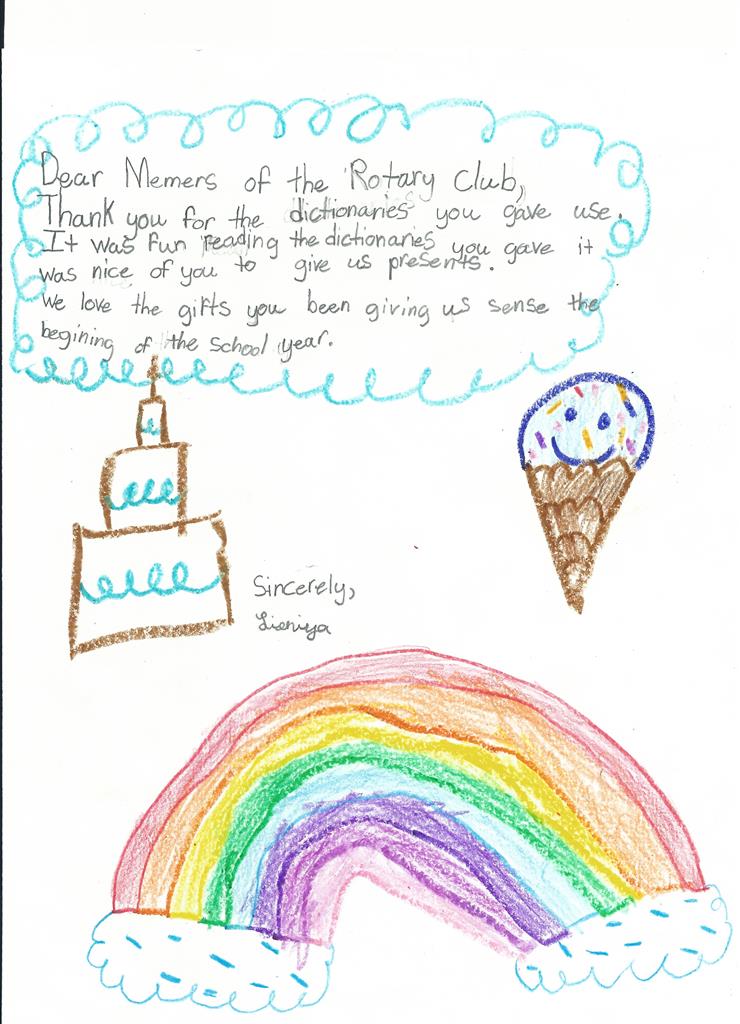 Dear Memers of the Rotary Club,
Thank you for the dictionaries you gave use.
It was fun reading the dictionaries you gave it
was nice of you to give us presents.
We love the gifts you been giving us sense the
begining of the school year.
Sincerely,